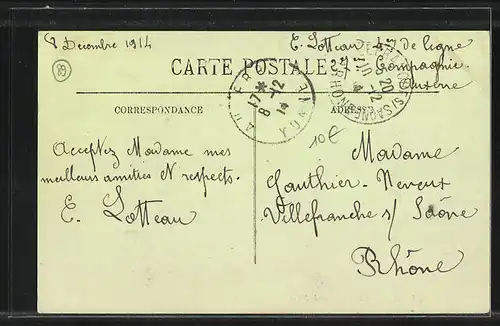 8 Décembre 1914
E. Lotteau 4e de ligne
Compagnie
Auxerre
CARTE POSTALE
CORRESPONDANCE
ADRESSE
17 *
8 -12
14
YONNE
20 -12
10€
89
Acceptez Madame mes
meilleurs amitiés & respects.
E. Lotteau
Madame
Gauthier-Neveux
Villefranche s/ Saône
Rhône